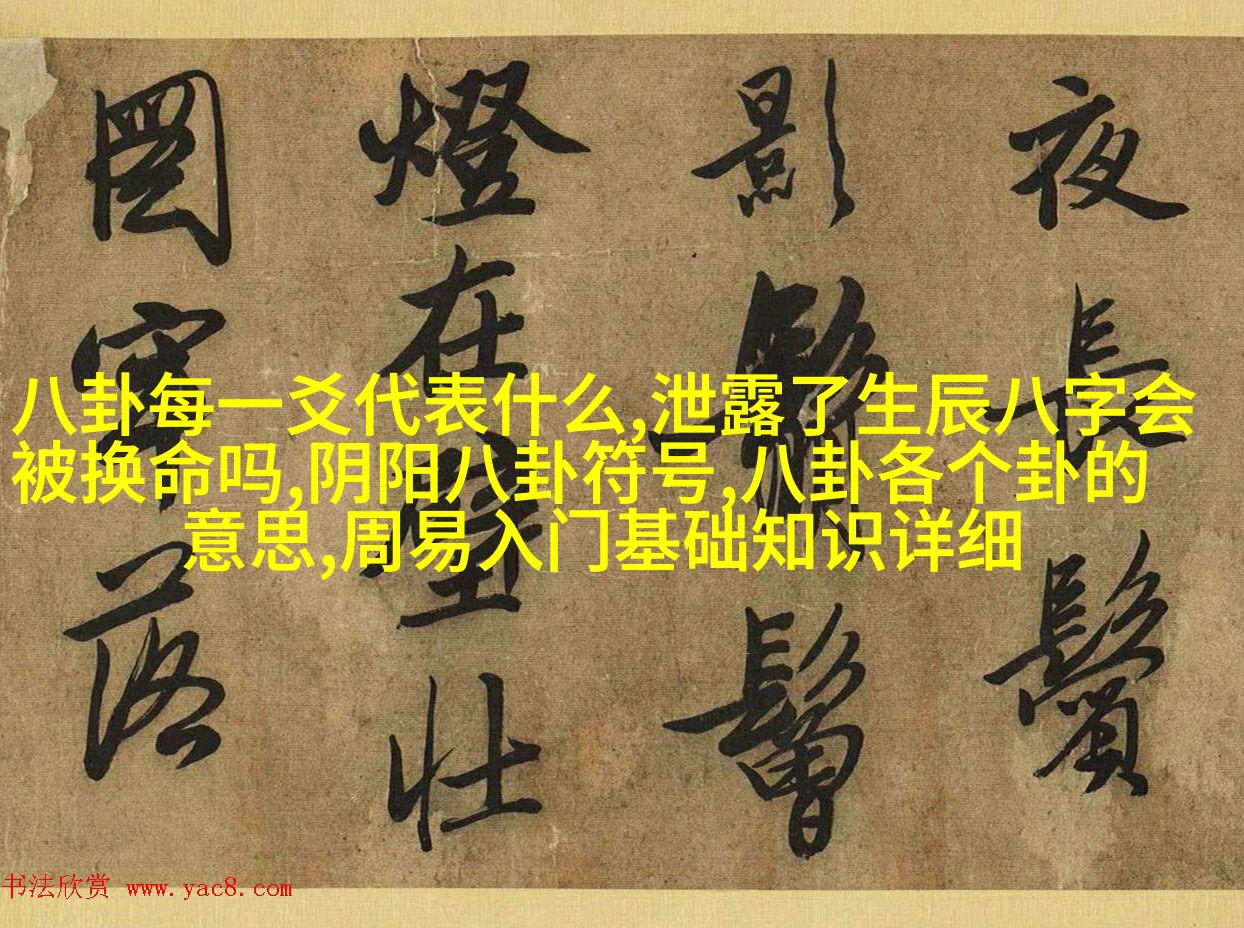 八卦每一爻代表什么,泄露了生辰八字会
被换命吗,阴阳八卦符号,八卦各个卦的
意思,周易入门基础知识详细
夜長鬢
影鬙
燈在壁壯
圖空落
书法欣赏 www.yac8.com